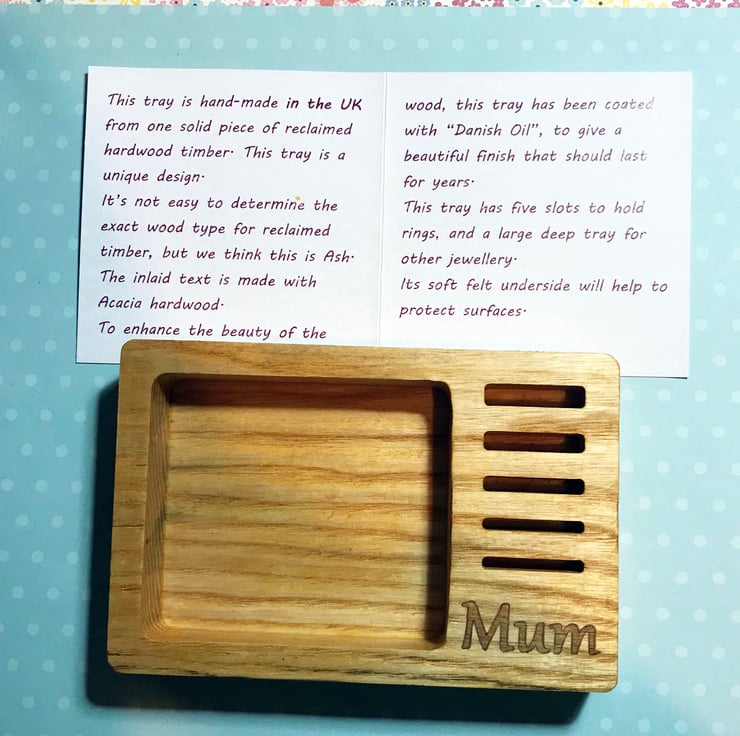 This tray is hand-made in the UK
from one solid piece of reclaimed
hardwood timber. This tray is a
unique design.
It's not easy to determine the
exact wood type for reclaimed
timber, but we think this is Ash.
The inlaid text is made with
Acacia hardwood.
To enhance the beauty of the
wood, this tray has been coated
with “Danish Oil”, to give a
beautiful finish that should last
for years.
This tray has five slots to hold
rings, and a large deep tray for
other jewellery.
Its soft felt underside will help to
protect surfaces.
Mum